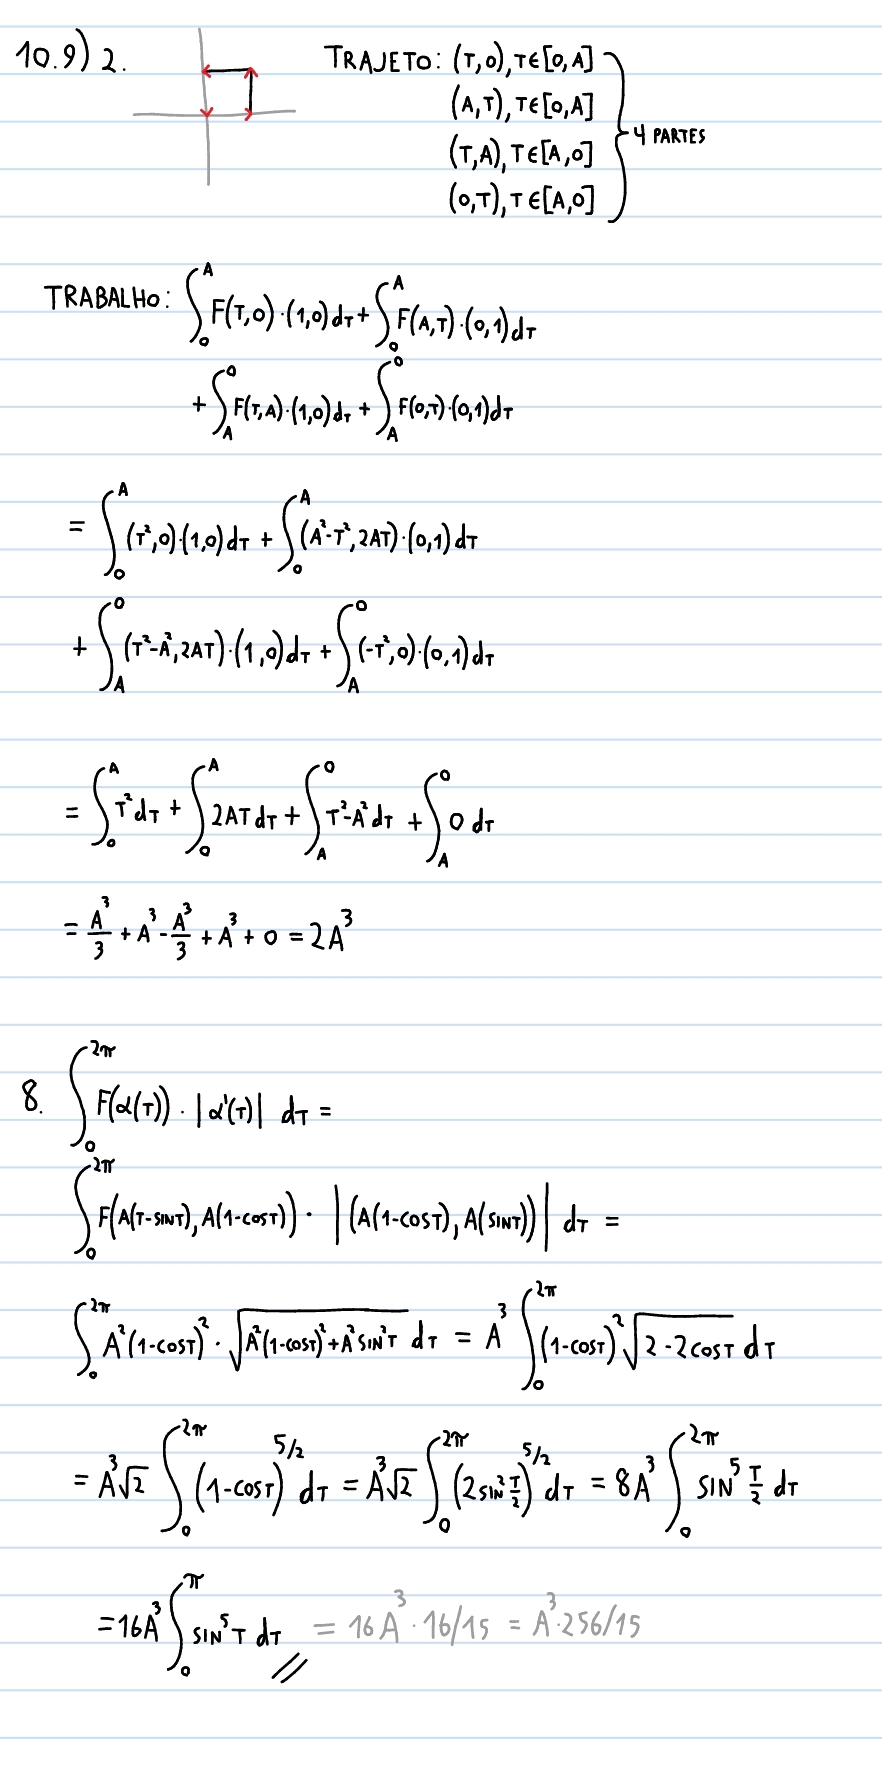 10.9) 2. TRAJETO: (T,0), T∈[0,A]
(A,T), T∈[0,A]
(T,A), T∈[A,0]
(0,T), T∈[A,0]
4 PARTES
TRABALHO: ∫₀^A F(T,0)·(1,0)dT + ∫₀^A F(A,T)·(0,1)dT
+ ∫_A^0 F(T,A)·(1,0)dT + ∫_A^0 F(0,T)·(0,1)dT
= ∫₀^A (T²,0)·(1,0)dT + ∫₀^A (A²-T²,2AT)·(0,1)dT
+ ∫_A^0 (T²-A²,2AT)·(1,0)dT + ∫_A^0 (-T²,0)·(0,1)dT
= ∫₀^A T²dT + ∫₀^A 2AT dT + ∫_A^0 T²-A² dT + ∫_A^0 0 dT
= A³/3 + A³ - A³/3 + A³ + 0 = 2A³
8. ∫₀^2π F(α(T)) · |α'(T)| dT =
∫₀^2π F(A(T-SINT), A(1-COST)) · |(A(1-COST), A(SINT))| dT =
∫₀^2π A²(1-COST)² · √(A²(1-COST)²+A²SIN²T) dT = A³ ∫₀^2π (1-COST)² √(2-2COST) dT
= A³√2 ∫₀^2π (1-COST)^5/2 dT = A³√2 ∫₀^2π (2SIN² T/2)^5/2 dT = 8A³ ∫₀^2π SIN⁵ T/2 dT
= 16A³ ∫₀^π SIN⁵T dT = 16A³·16/15 = A³·256/15